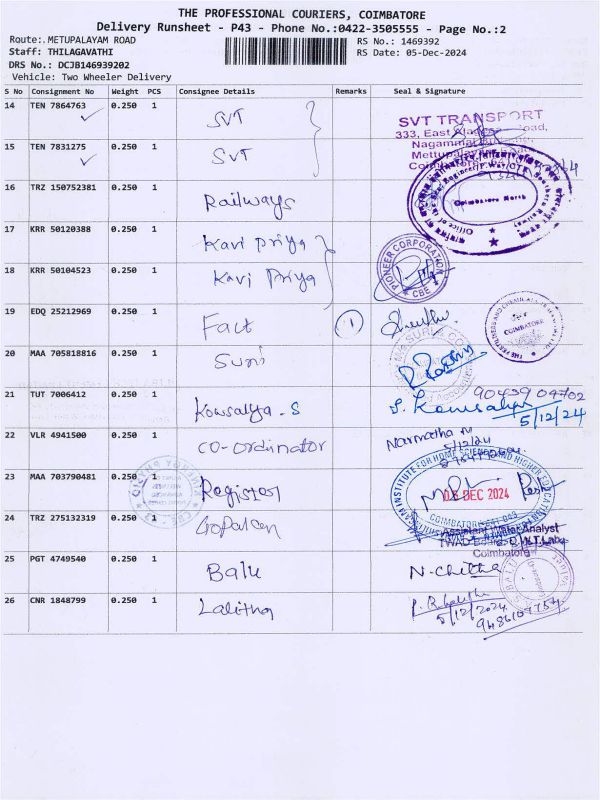 THE PROFESSIONAL COURIERS, COIMBATORE
Delivery Runsheet - P43 - Phone No.:0422-3505555 - Page No.:2
Route:. METUPALAYAM ROAD
RS No.: 1469392
Staff: THILAGAVATHI
RS Date: 05-Dec-2024
DRS No.: DCJB146939202
Vehicle: Two Wheeler Delivery
S No Consignment No Weight PCS Consignee Details Remarks Seal & Signature
14 TEN 7864763 0.250 1 SVT
SVT TRANSPORT
15 TEN 7831275 0.250 1 SVT
Coimbatore North
16 TRZ 150752381 0.250 1 Railways
17 KRR 50120388 0.250 1 Kavi Priya
PIONEER CORPORATION CBE
18 KRR 50104523 0.250 1 Kavi Priya
19 EDQ 25212969 0.250 1 Fact 1
COIMBATORE
20 MAA 705818816 0.250 1
21 TUT 7006412 0.250 1 Kowsalya . S
5/12/24
22 VLR 4941500 0.250 1 CO-Ordinator
5/12/24
23 MAA 703790481 0.250 1 Register
05 DEC 2024
COIMBATORE-641 043
24 TRZ 275132319 0.250 1
Coimbatore
25 PGT 4749540 0.250 1 Balu N. Chitha
26 CNR 1848799 0.250 1 Lalitha
5/12/2024